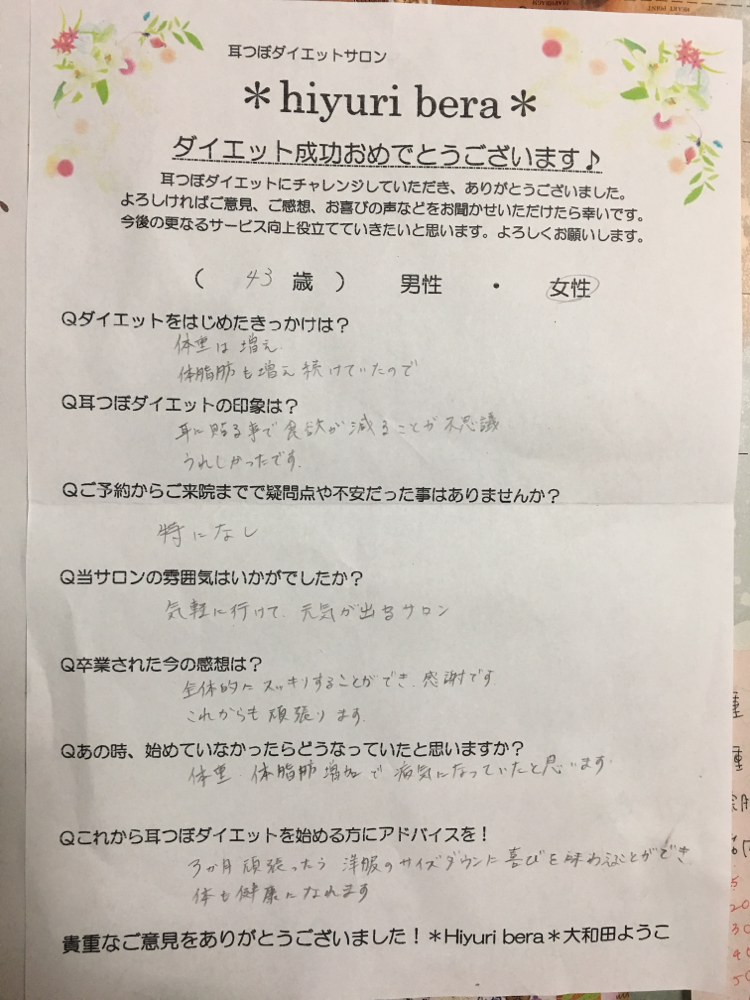 耳つぼダイエットサロン
＊hiyuri bera＊
ダイエット成功おめでとうございます♪
耳つぼダイエットにチャレンジしていただき、ありがとうございました。
よろしければご意見、ご感想、お喜びの声などをお聞かせいただけたら幸いです。
今後の更なるサービス向上役立てていきたいと思います。よろしくお願いします。
（ 43 歳 ） 男性 ・ 女性
Qダイエットをはじめたきっかけは？
体重は増え
体脂肪も増え続けていたので
Q耳つぼダイエットの印象は？
耳に貼る事で食欲が減ることが不思議
うれしかったです.
Qご予約からご来院までで疑問点や不安だった事はありませんか？
特になし
Q当サロンの雰囲気はいかがでしたか？
気軽に行けて、元気が出るサロン
Q卒業された今の感想は？
全体的にスッキリすることができ、感謝です
これからも頑張ります.
Qあの時、始めていなかったらどうなっていたと思いますか？
体重、体脂肪増加で病気になっていたと思います.
Qこれから耳つぼダイエットを始める方にアドバイスを！
3か月頑張ったら洋服のサイズダウンに喜びを味わうことができ
体も健康になれます
貴重なご意見をありがとうございました！＊Hiyuri bera＊大和田ようこ